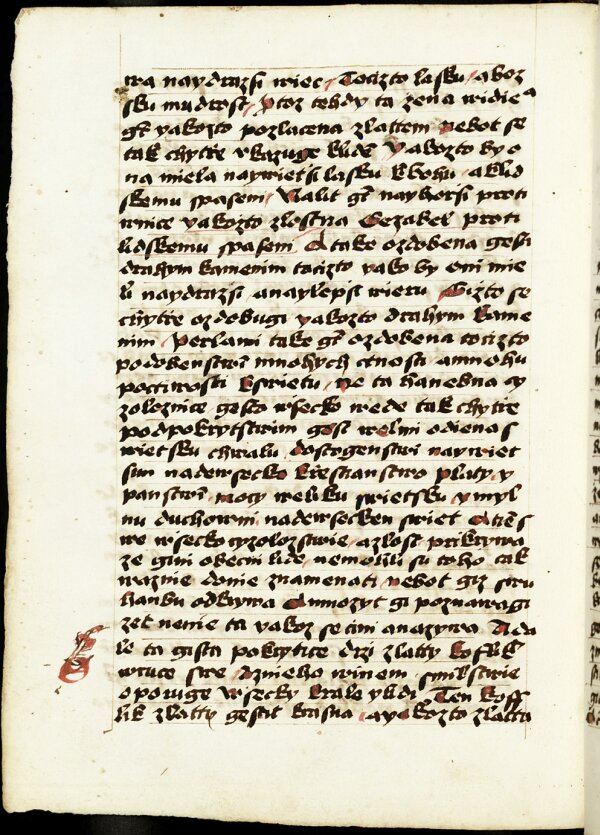 wa naydrazsi wiec Tocizto lasku a boz
sku mudrost ytoz tehdy ta zena widie
gt yakozto pozlacena zlattem nebot se
tak chytrze vkazuge lidem yakozto by o
na miela naywietsi lasku kbohu a klid
skemu spaseni Nalit gt nayhorsi proti
wnice yakozto zlostna Gezabel proti
lidskemu spaseni A take ozdobena gest
drahym kamenim tocizto yako by oni mie
li naydrazsi a naylepsi wieru Gizto se
chytrze ozdobugi yakozto drahym kame
nim Perlami take gt ozdobena tocizto
podobenstwi mnohych ctnosti a mnohu
poctiwosti kswietu ne ta hanebna cy
zoloznice gesto wsecko wede tak chytrze
pod pokrytstwim gest welmi odiena s
wietsku chwalu dostogenstwi naywiet
sim nadewsecko krzestianstwo platy y
panstwi mocy weliku swietsku y myl
nu duchowni nadewsecken swiet A tez s
we wsecko cyzolozstwie a zlost prikrywa
ze gini obecni lide nemohli su toho tak
waznie donie znamenati nebot giz swu
hanbu odkrywa A mnozyt gi poznawagi
zet nenie ta yakoz se cini a nazywa A da
le ta gista pokrytice drzi zlatty koflik
wruce swe dznieho winem smilstwie
opoguge wsecky krale y lidi Ten koff
lik zlatty gestit krasna a yakozto zlatta